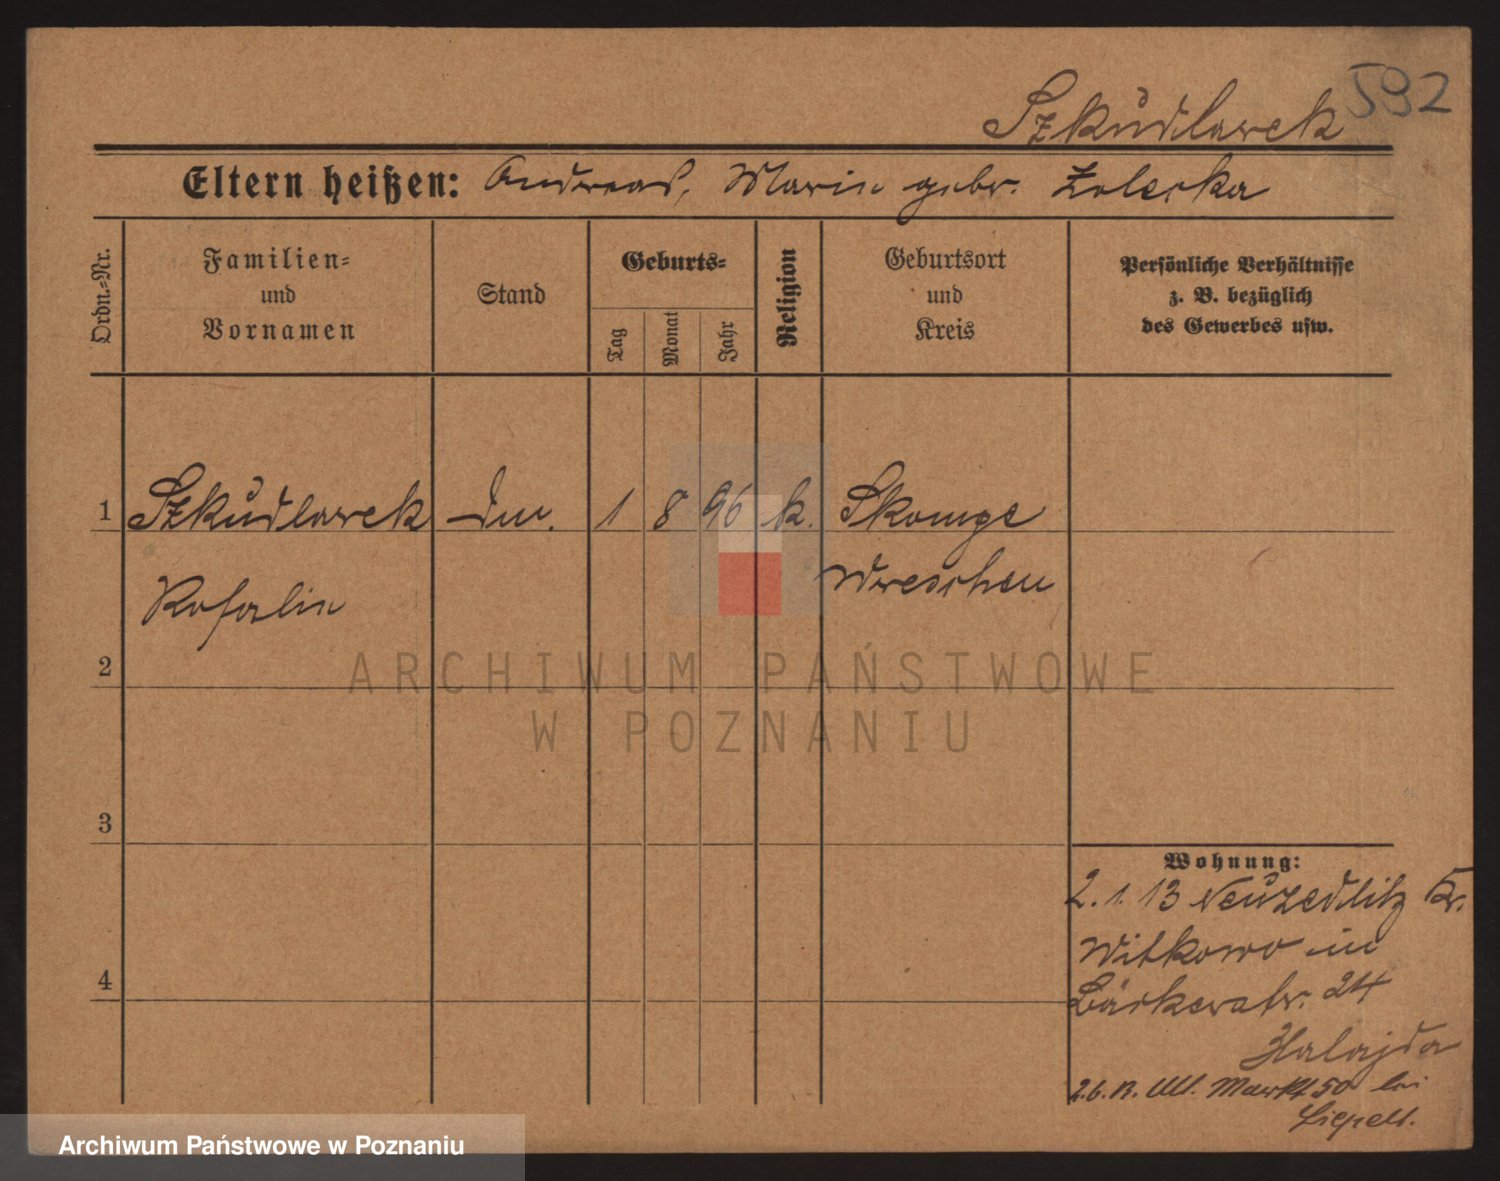 592
Szkudlarek
Eltern heißen: Andreas, Marie gebr. Zolecka
Ordn.-Nr.
Familien-
und
Vornamen
Stand
Geburts-
Tag
Monat
Jahr
Religion
Geburtsort
und
Kreis
Persönliche Verhältnisse
z. B. bezüglich
des Gewerbes usw.
1 Szkudlarek 1 8 96 k. Skompe
Rosalie Wreschen
2
3
4
Wohnung:
2. 1. 13 Neuzedlitz Kr.
Witkowo in
Bäckerstr. 24
Halajda
Alt. Markt 50 bei
ARCHIWUM PAŃSTWOWE
W POZNANIU
Archiwum Państwowe w Poznaniu